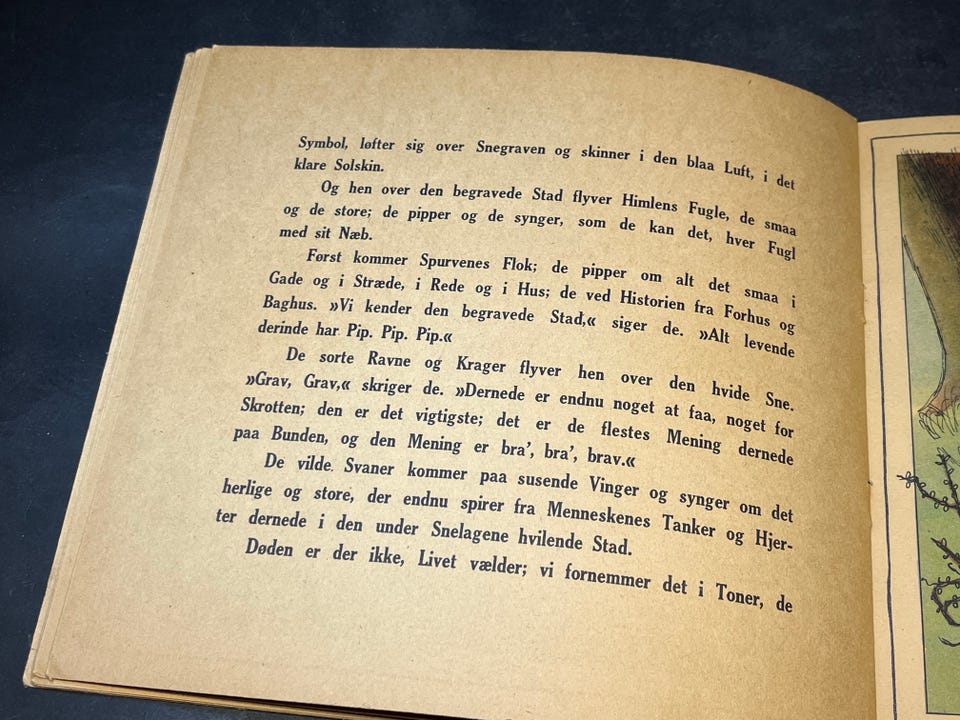 Symbol, løfter sig over Snegraven og skinner i den blaa Luft, i det
klare Solskin.
Og hen over den begravede Stad flyver Himlens Fugle, de smaa
og de store; de pipper og de synger, som de kan det, hver Fugl
med sit Næb.
Først kommer Spurvenes Flok; de pipper om alt det smaa i
Gade og i Stræde, i Rede og i Hus; de ved Historien fra Forhus og
Baghus. »Vi kender den begravede Stad,« siger de. »Alt levende
derinde har Pip. Pip. Pip.«
De sorte Ravne og Krager flyver hen over den hvide Sne.
»Grav, Grav,« skriger de. »Dernede er endnu noget at faa, noget for
Skrotten; den er det vigtigste; det er de flestes Mening dernede
paa Bunden, og den Mening er bra', bra', brav.«
De vilde Svaner kommer paa susende Vinger og synger om det
herlige og store, der endnu spirer fra Menneskenes Tanker og Hjer-
ter dernede i den under Snelagene hvilende Stad.
Døden er der ikke, Livet vælder; vi fornemmer det i Toner, de